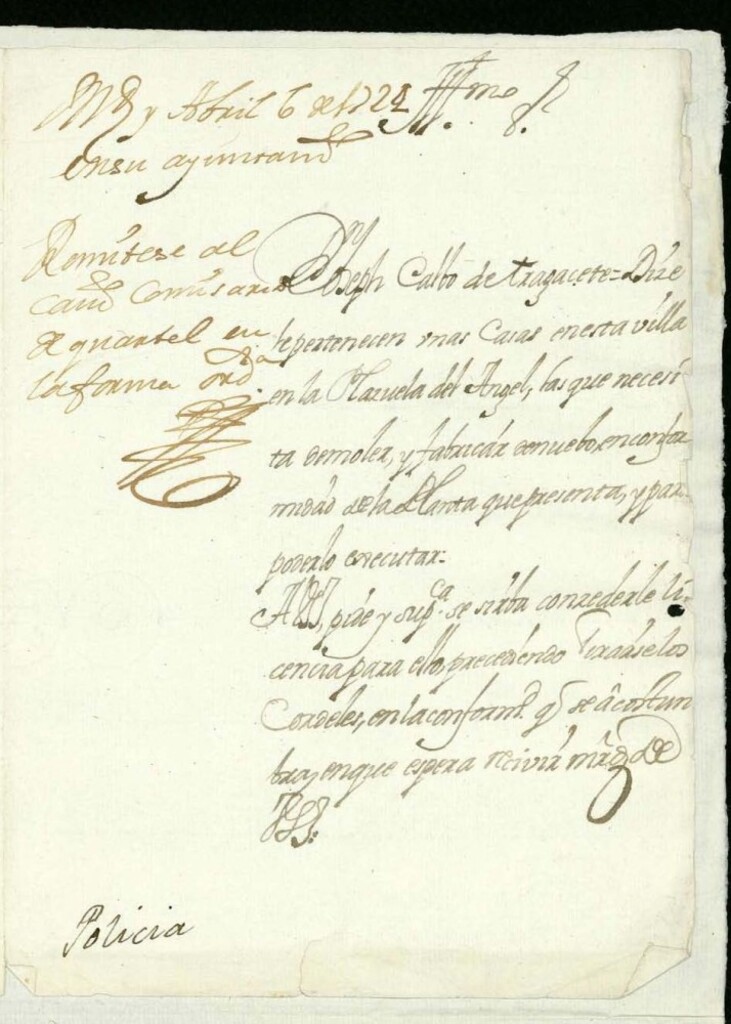 Md y Abril 6 de 1722
en su ayuntamto
Remitese al
cauo Comisario
de quartel en
la forma orda
Illmo Sr
Dn Joseph Calbo de tragacete = Dize
le pertenecen unas Casas en esta villa
en la Plazuela del Angel, las que necesi
ta demoler, y fabricar de nuebo, en confor
midad de la Planta que presenta, y para
poderlo executar =
A VSI, pide y supca se sirba concederle li-
cencia para ello, precediendo tirarse los
Cordeles, en la conformd. q se acostum
bra, en que espera recivir mrd de
VSI.
Policia